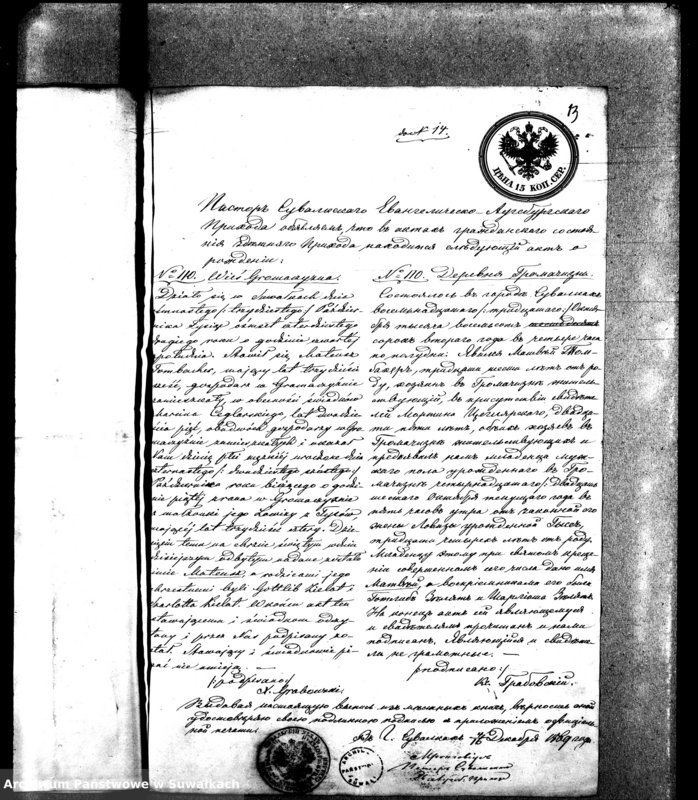 13
dod № 14.
ЦѢНА 15 КОП. СЕР.
Пасторъ Сувалкскаго Евангелическо-Аугсбургскаго
Прихода объявляетъ, что въ актахъ гражданскаго состоя-
нія Прихода находится слѣдующій актъ о
рожденіи:
№ 110. Wieś Gromaczyzna.
Działo się w Suwałkach dnia
/: trzydziestego :/ Paździer-
nika Tysiąc ośmset czterdziestego
drugiego roku o godzinie czwartej
popołudniu. Stawił się Mateusz
Tombacher, mający lat trzydzieści
sześć, gospodarz w Gromaczyznie
zamieszkały, w obecności świadków
Marcina Ceglarskiego, lat dwadzieścia
pięć, obadwóch gospodarzy w Gro-
maczyznie zamieszkałych i okazał
Nam dziecię płci męzkiej urodzone dnia
czternastego /: dwudziestego szóstego :/
Października roku bieżącego o godzi-
nie piątej z rana w Gromaczyznie
z małżonki jego Lowizy z
mającej lat trzydzieści cztery. Dzie-
cięciu temu na chrzcie świętym w dniu
dzisiejszym odbytym nadane zostało
imię Mateusz, a rodzicami jego
chrzestnemi byli Gottlib Kielat i
Szarlotta Kielat. W końcu akt ten
stawającemu i świadkom odczy-
tany i przez Nas podpisany zo-
stał. Stawający i świadkowie pi-
sać nie umieją. —
/: podpisano :/
X. Grabowski.
№ 110. Деревня Громачизна.
Состоялось въ городѣ Сувалкахъ
восемнадцатаго /: тридцатаго :/ Октя-
бря тысяча восемсотъ
сорокъ втораго года въ четыре часа
по полудни. Явился Матвѣй Том-
бахеръ, тридцати шести лѣтъ отъ ро-
ду, хозяинъ въ Громачизнѣ житель-
ствующій, въ присутствіи свидѣте-
лей Мартина Цеглярскаго, двадца-
ти пяти лѣтъ, обѣихъ хозяевъ въ
Громачизнѣ жительствующихъ и
предъявилъ намъ младенца муж-
скаго пола урожденнаго въ Гро-
мачизнѣ четырнадцатаго /: двадцать
шестаго Октября текущаго года въ
пять часовъ утра отъ законной его
жены Ловизы урожденной
тридцати четырехъ лѣтъ отъ роду.
Младенцу этому при святомъ креще-
ніи совершенномъ сего числа дано имя
Матвѣй, а воспріемниками его были
Готлибъ и Шарлота
На конецъ актъ сей являющемуся
и свидѣтелямъ прочитанъ и нами
подписанъ. Являющійся и свидѣте-
ли не грамотные. —
/: подписано :/
Кс. Грабовскій.
Выдавая настоящую выпись изъ книгъ, вѣрность оной
удостовѣряю своею подписью и приложеніемъ
ной печати.
Въ Г. Сувалкахъ Декабря года
Пасторъ Сувалкскаго
ARCHIWUM
PAŃSTWOWE
SUWAŁKI
Archiwum Państwowe w Suwałkach